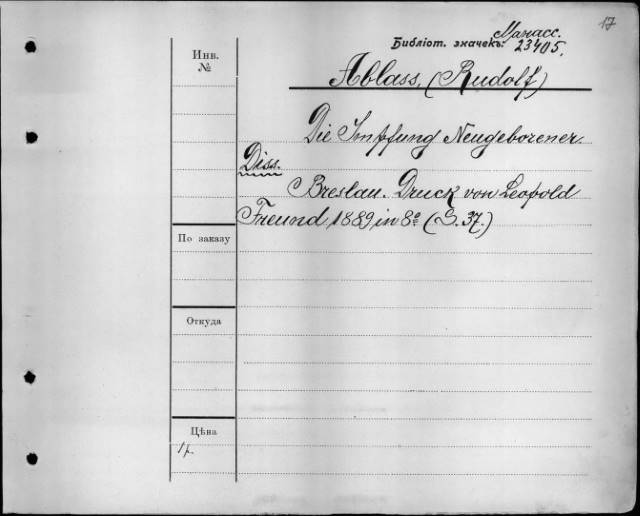 17
Манасс.
Библіот. значекъ: 23405.
Инв.
№
Ablass, (Rudolf)
Die Impfung Neugeborener.
Diss.
Breslau. Druck von Leopold
Freund 1889 in 8° (S. 37.)
По заказу
Откуда
Цѣна
1р.